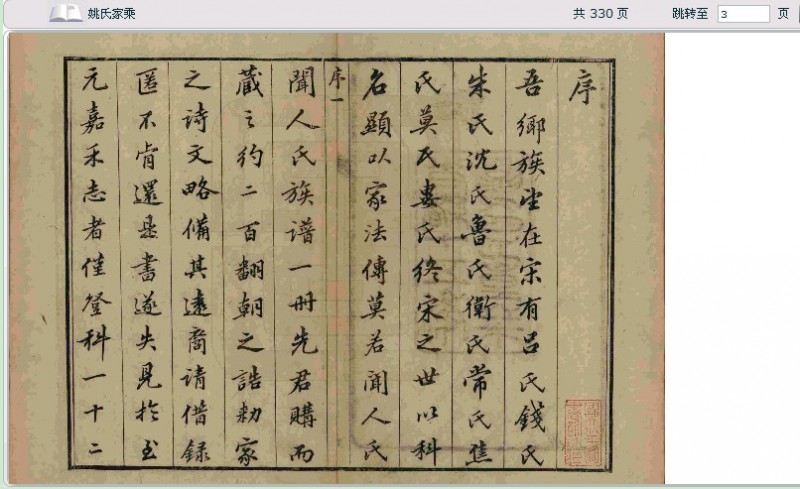 姚氏家乘
共 330 页
跳转至 3 页
序
吾鄉族望在宋有吕氏錢氏
朱氏沈氏魯氏衛氏常氏焦
氏莫氏婁氏終宋之世以科
名顯以家法傳莫若聞人氏
序一
聞人氏族譜一冊先君購而
藏之約二百翻朝之誥勅家
之詩文略備其遠裔請借録
匿不肯還是書遂失見於至
元嘉禾志者僅登科一十二